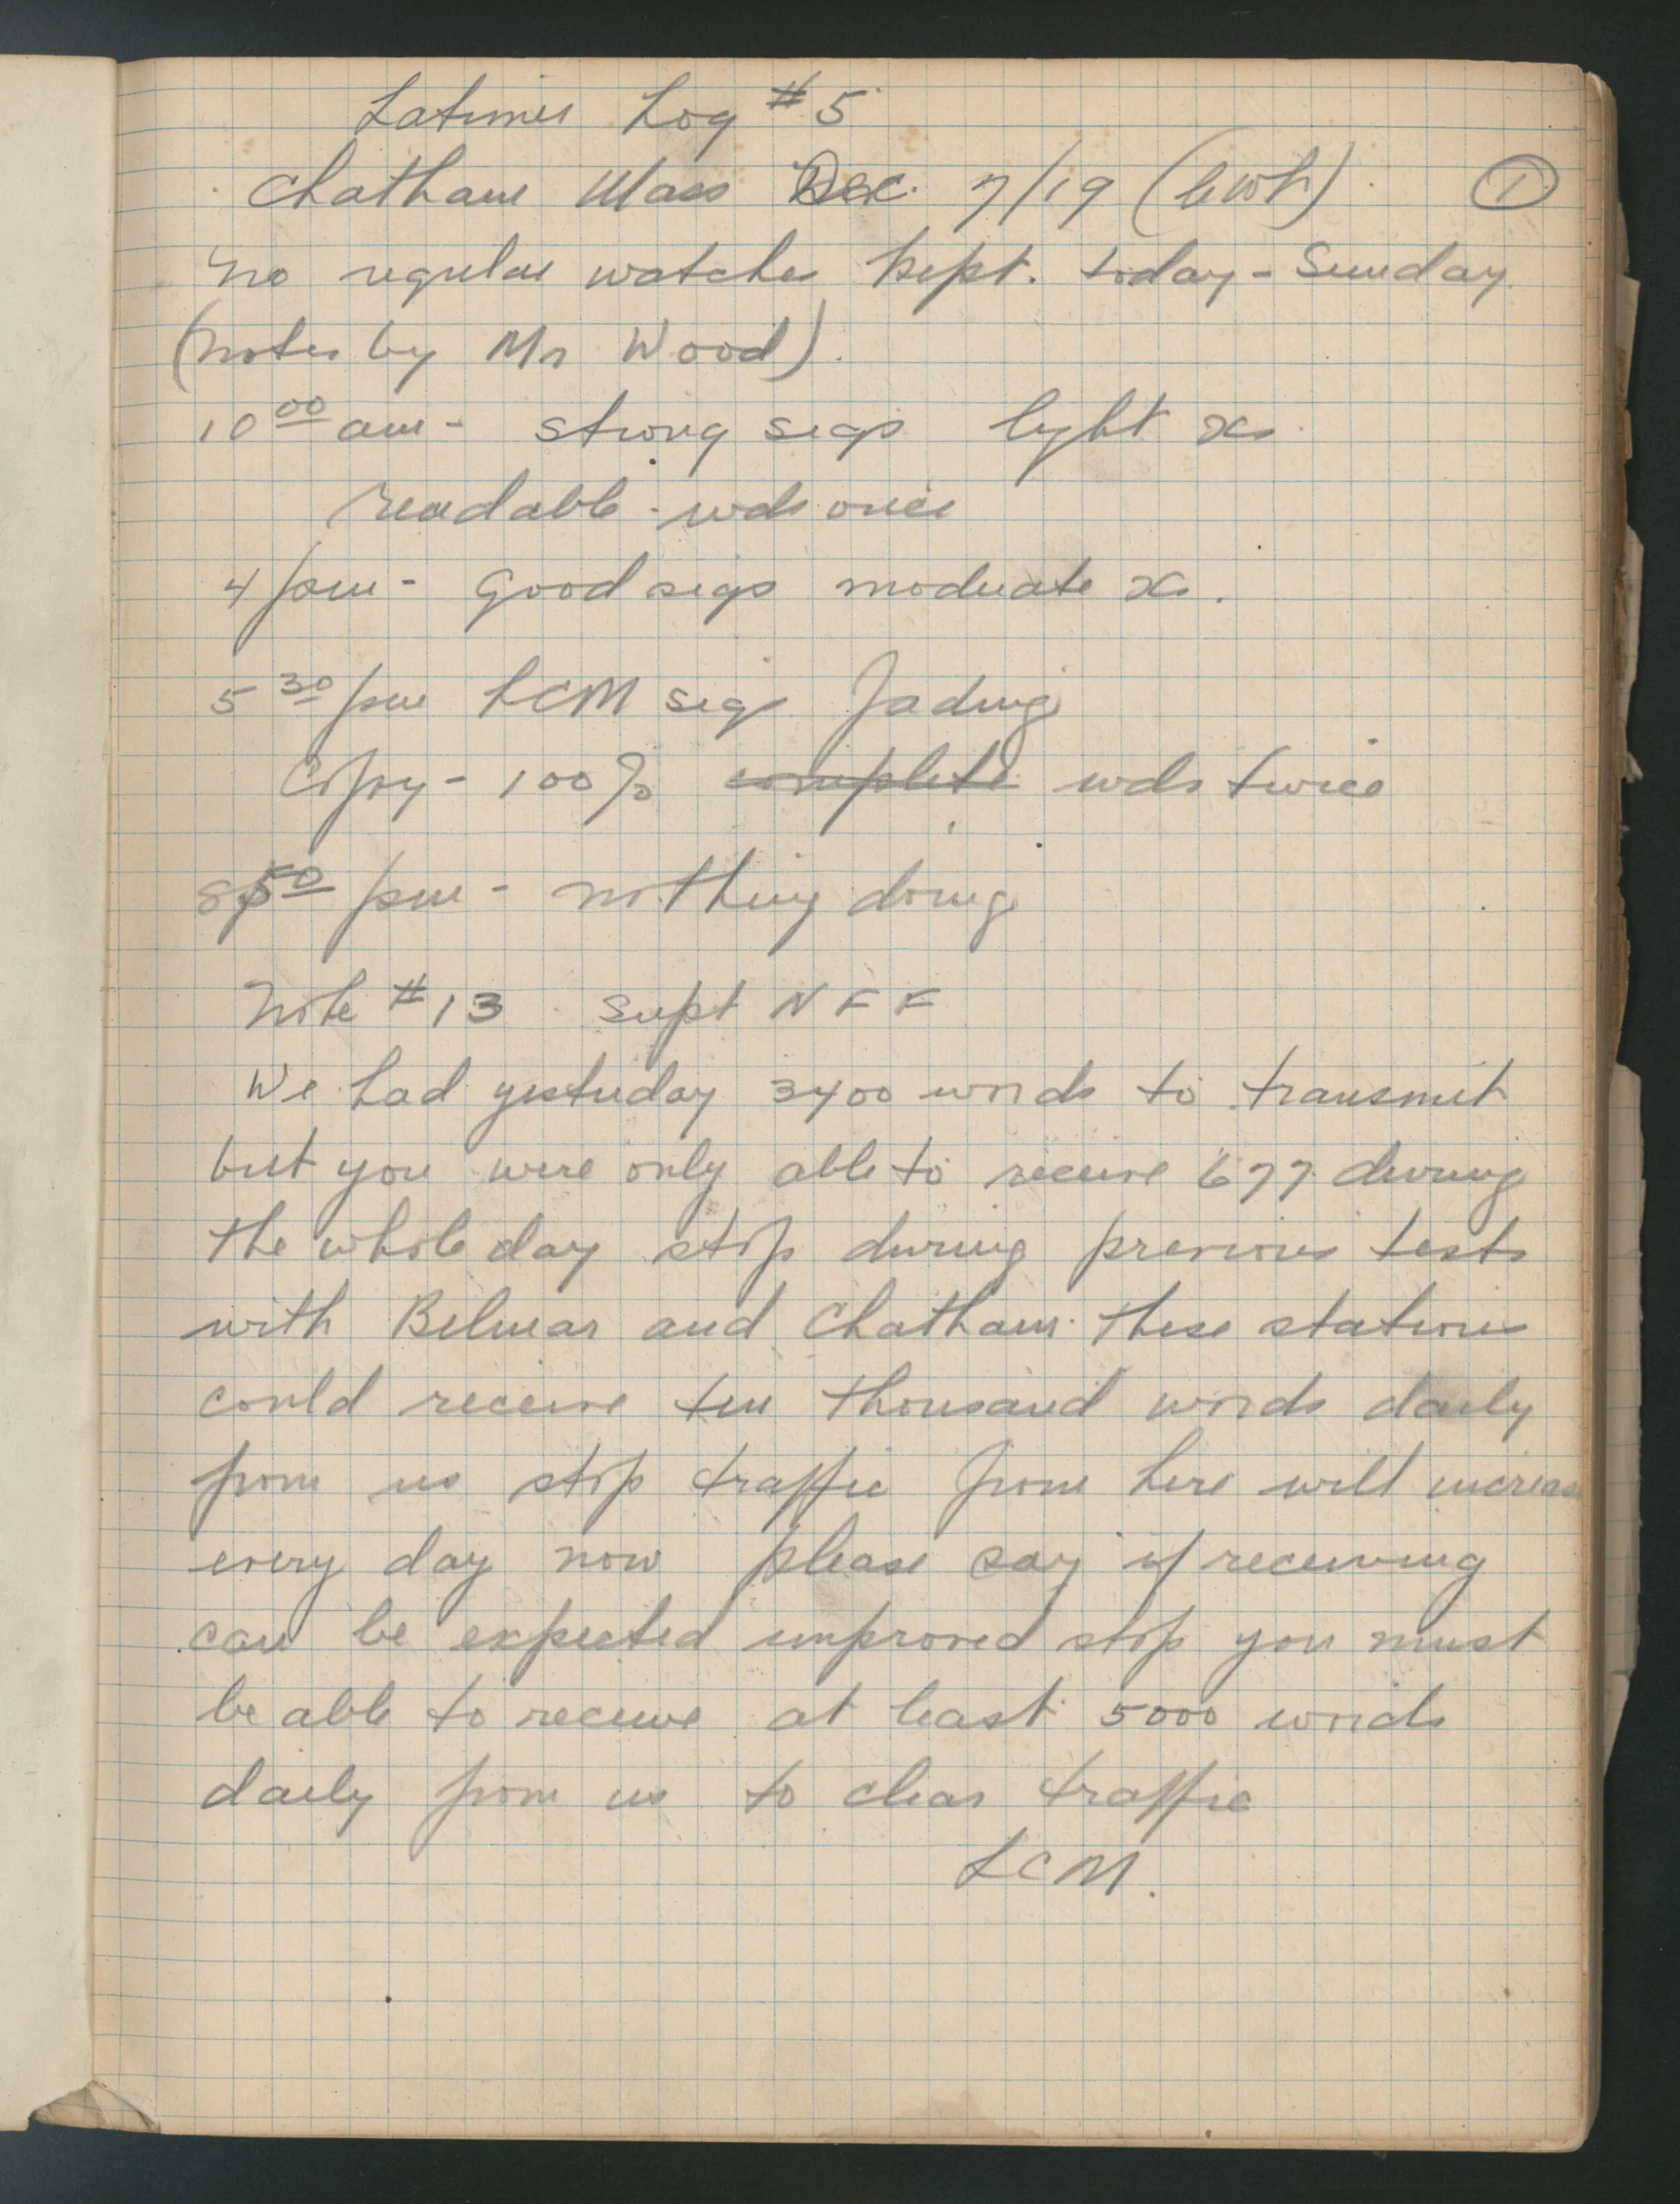 Latimer Log #5
Chatham Mass Dec. 7/19 (CWL) ①
No regular watches kept. today - Sunday
(notes by Mr Wood).
10 00 am - strong sigs light xs
readable - wds once
4 pm - Good sigs moderate xs.
5 30 pm LCM sigs fading
Copy - 100% complete wds twice
8 50 pm - nothing doing
Note #13 Supt NFF
We had yesterday 3400 words to transmit
but you were only able to receive 677 during
the whole day stop during previous tests
with Belmar and Chatham these stations
could receive ten thousand words daily
from us stop traffic from here will increase
every day now please say if receiving
can be expected improved stop you must
be able to receive at least 5000 words
daily from us to clear traffic
LCM.